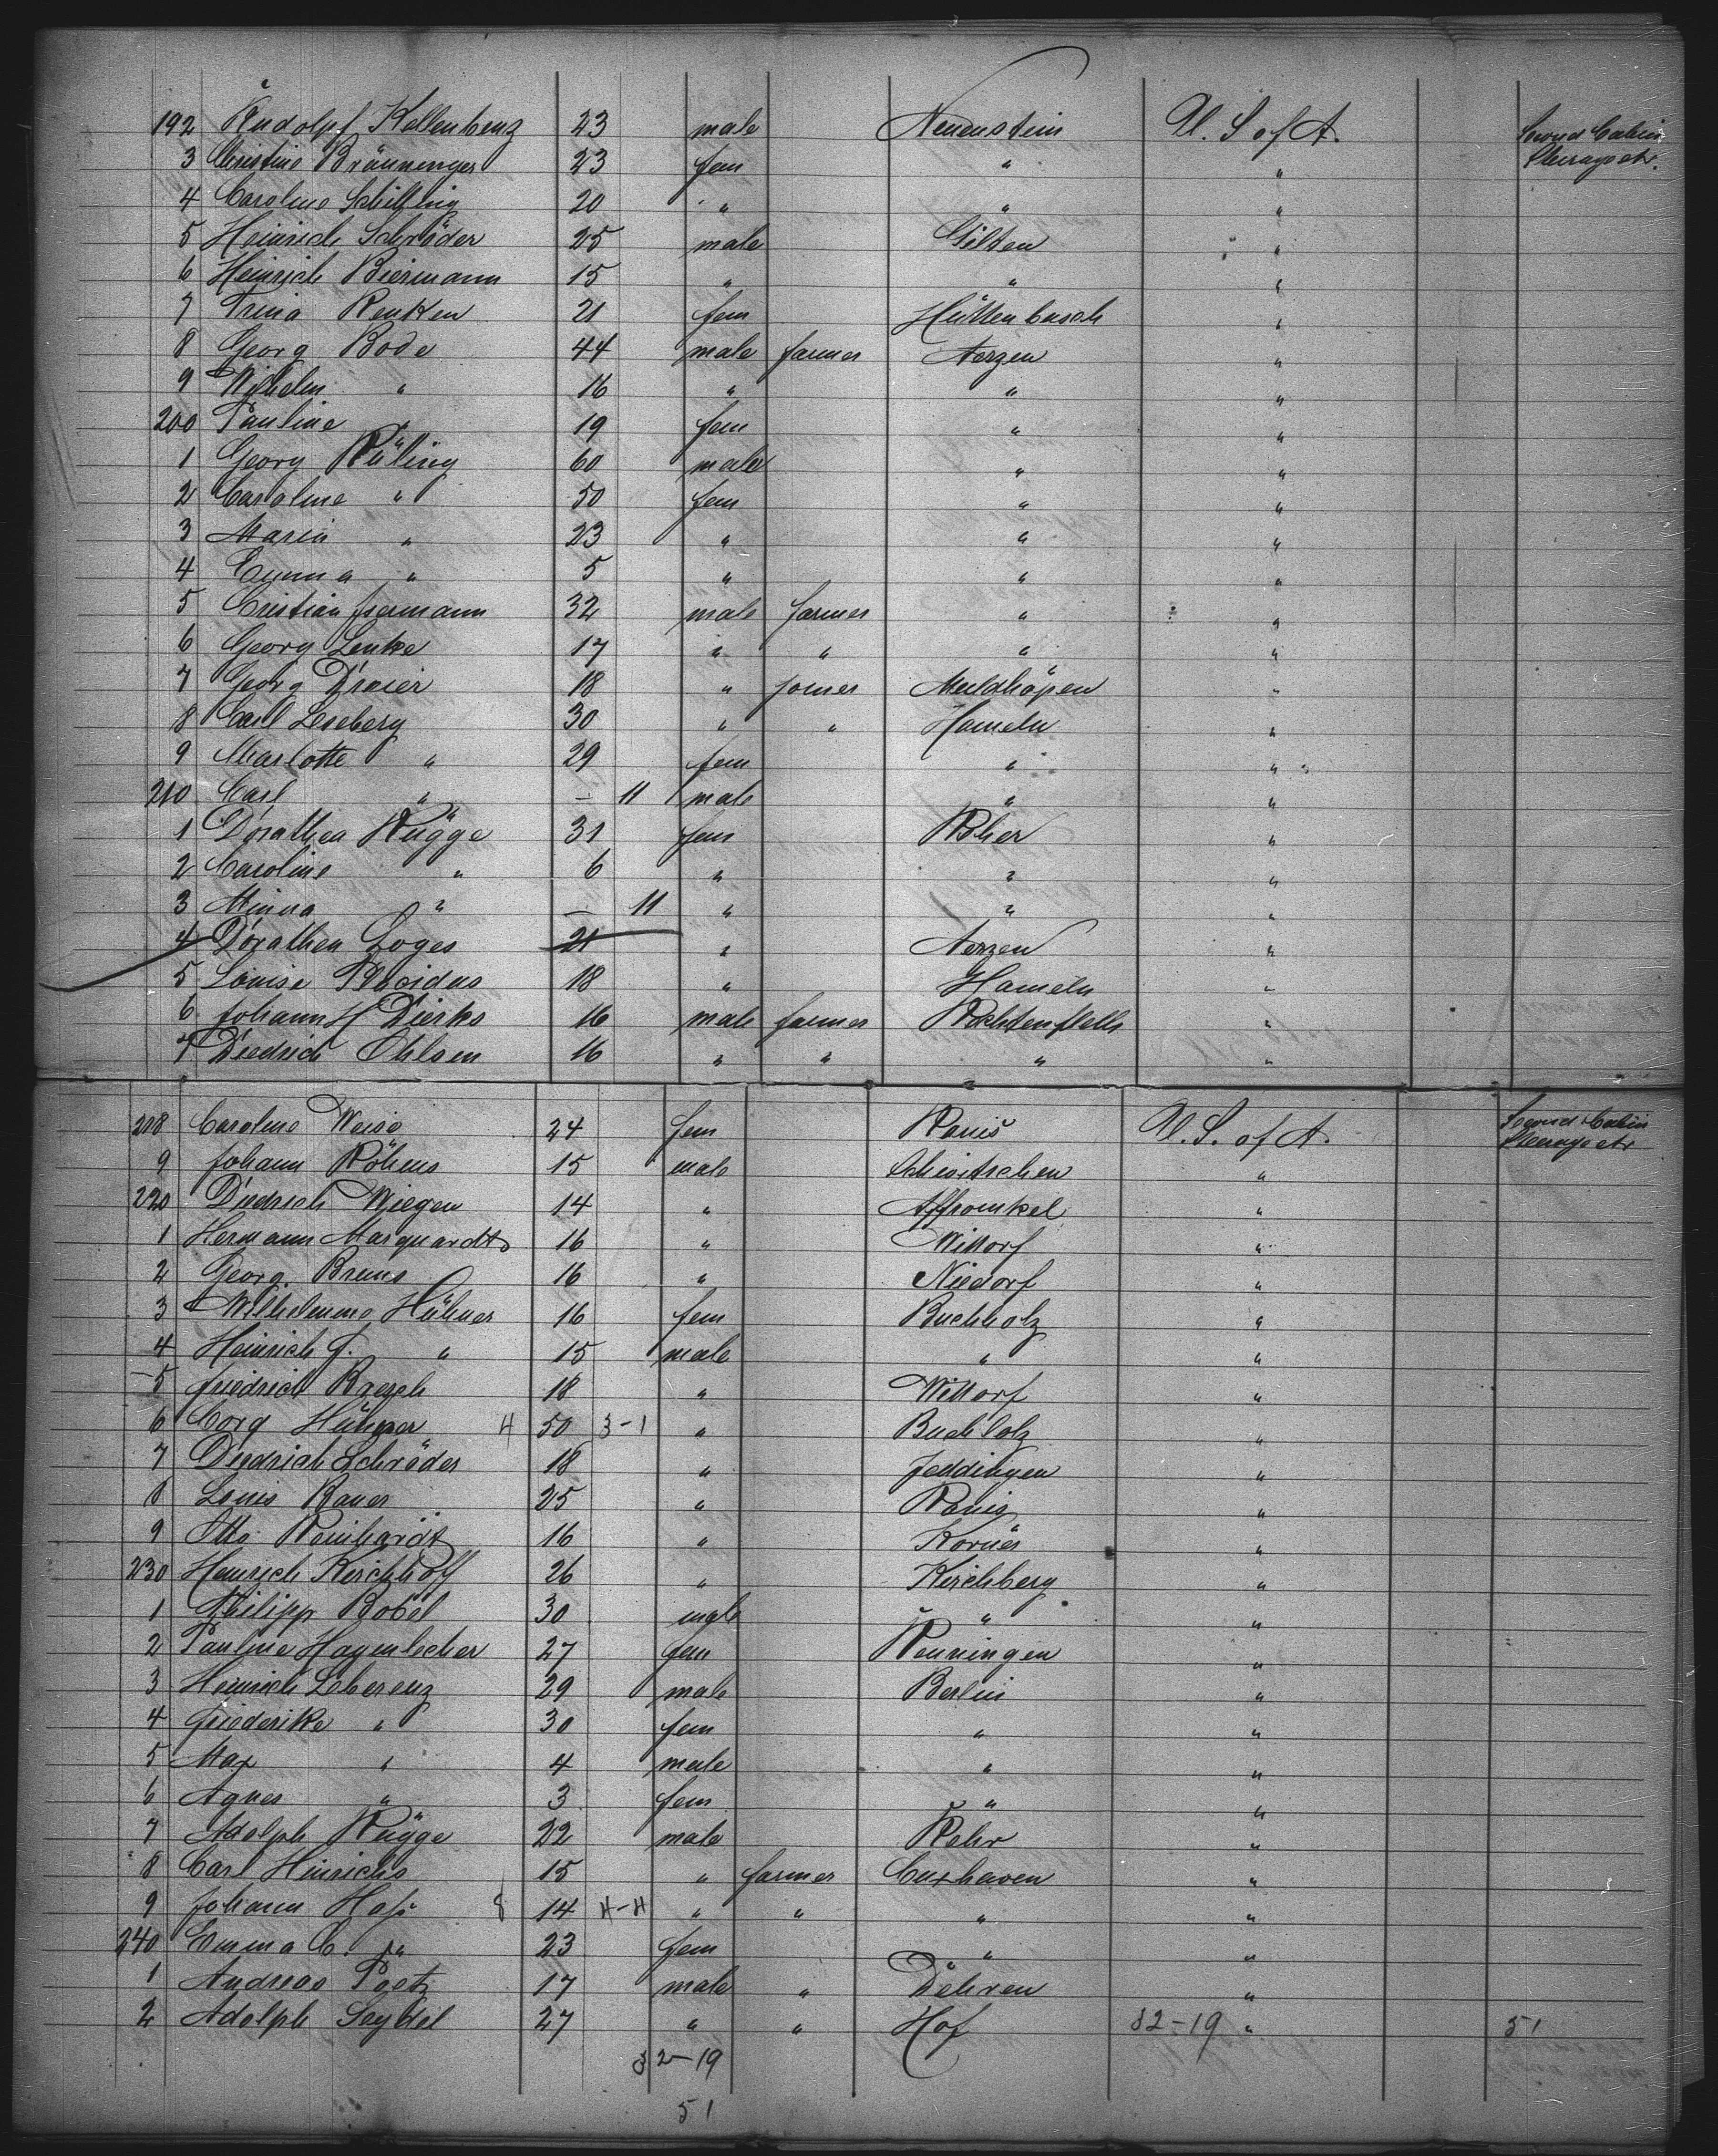 192 Rudolf Kellenbenz 23 male Neuenstein U. S. of A. Second Cabin
3 Christine Bräuninger 23 fem " " Steerage etr.
4 Caroline Schilling 20 " " "
5 Heinrich Schröder 25 male Gilten "
6 Heinrich Biermann 15 " " "
7 Trina Renken 21 fem Hüttenbusch "
8 Georg Bode 44 male farmer Aerzen "
9 Wilhelm " 16 " " "
200 Pauline " 19 fem " "
1 Georg Rüling 60 male " "
2 Caroline " 50 fem " "
3 Marie " 23 " " "
4 Emma " 5 " " "
5 Cristian Isermann 32 male farmer " "
6 Georg Lenke 17 " " " "
7 Georg Dreier 18 " joiner "
8 Carl Leseberg 30 " " Hameln "
9 Charlotte " 29 fem " "
210 Carl " – 11 male " "
1 Dorathea Rügge 31 fem Rher "
2 Caroline " 6 " " "
3 Minna " – 11 " " "
4 Dorathea Loges 21 " Aerzen "
5 Louise Plasidus 18 " Hameln "
6 Johann H Dierks 16 male farmer "
7 Diedrich Ohlsen 16 " " " "
218 Caroline Weise 24 fem Ranis U. S. of A. Second Cabin
9 Johann Röhrns 15 male " Steerage etr
220 Diedrich Wiegen 14 " "
1 Hermann Marquardt 16 " Wittorf "
2 Georg Bruns 16 " Niedorf "
3 Wilhelmine Hühner 16 fem Buchholz "
4 Heinrich J. " 15 male " "
5 Friedrich Bresch 18 " Wittorf "
6 Corg Hühner H 50 3-1 " Buchholz "
7 Diedrich Schröder 18 " Jeddingen "
8 Louis Bauer 25 " Ranis "
9 Otto Reinhardt 16 " Körner "
230 Heinrich Kirchhoff 26 " Kirchberg "
1 Philipp Bobel 30 male " "
2 Pauline Hagenlocher 27 fem Renningen "
3 Heinrich Leberenz 29 male Berlin "
4 Friederike " 30 fem " "
5 Max " 4 male " "
6 Agnes " 3 fem " "
7 Adolph Rügge 22 male Reher "
8 Carl Hinrichs 15 " farmer Cuxhaven "
9 Johann Hass 8 14 H-H " " " "
240 Emma C. " 23 fem " "
1 Andreas Poetz 17 male " Döhren "
2 Adolph Seydel 27 " " Hof 32-19 " 51
32-19
51